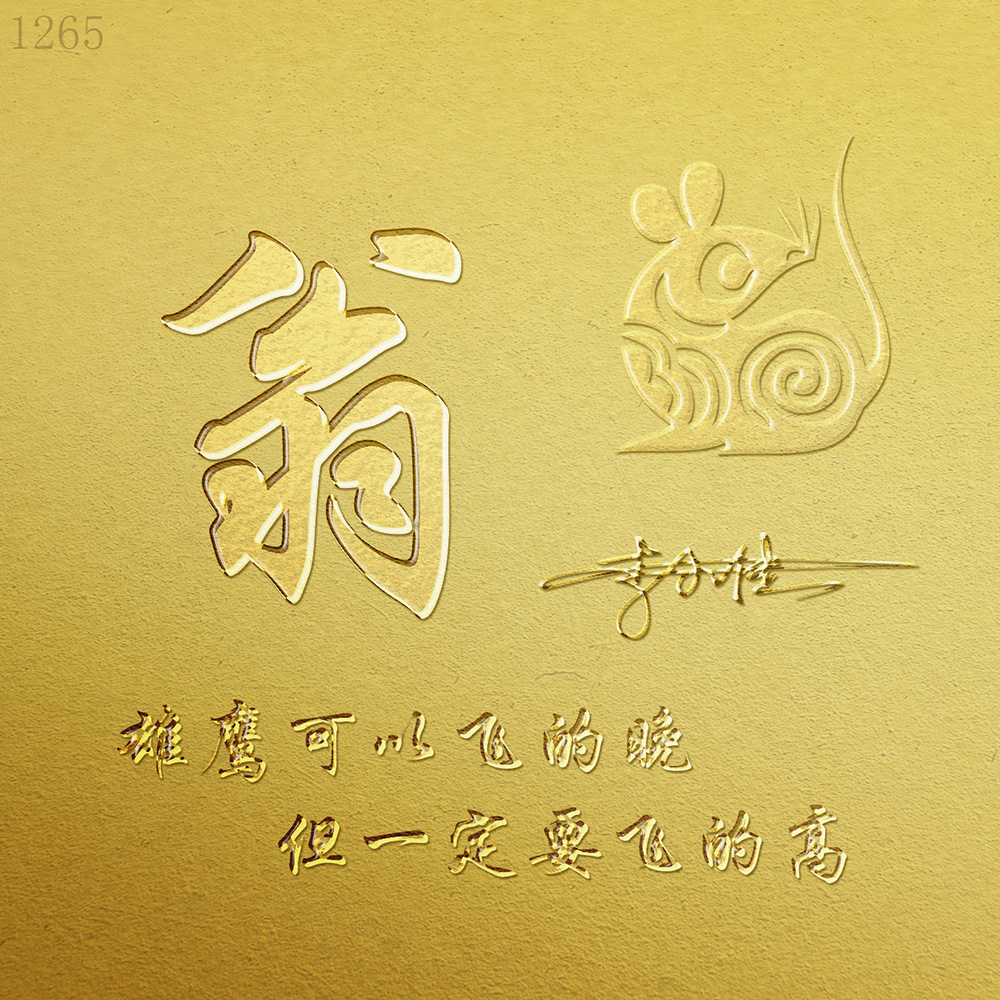 1265
翁
雄鹰可以飞的晚
但一定要飞的高